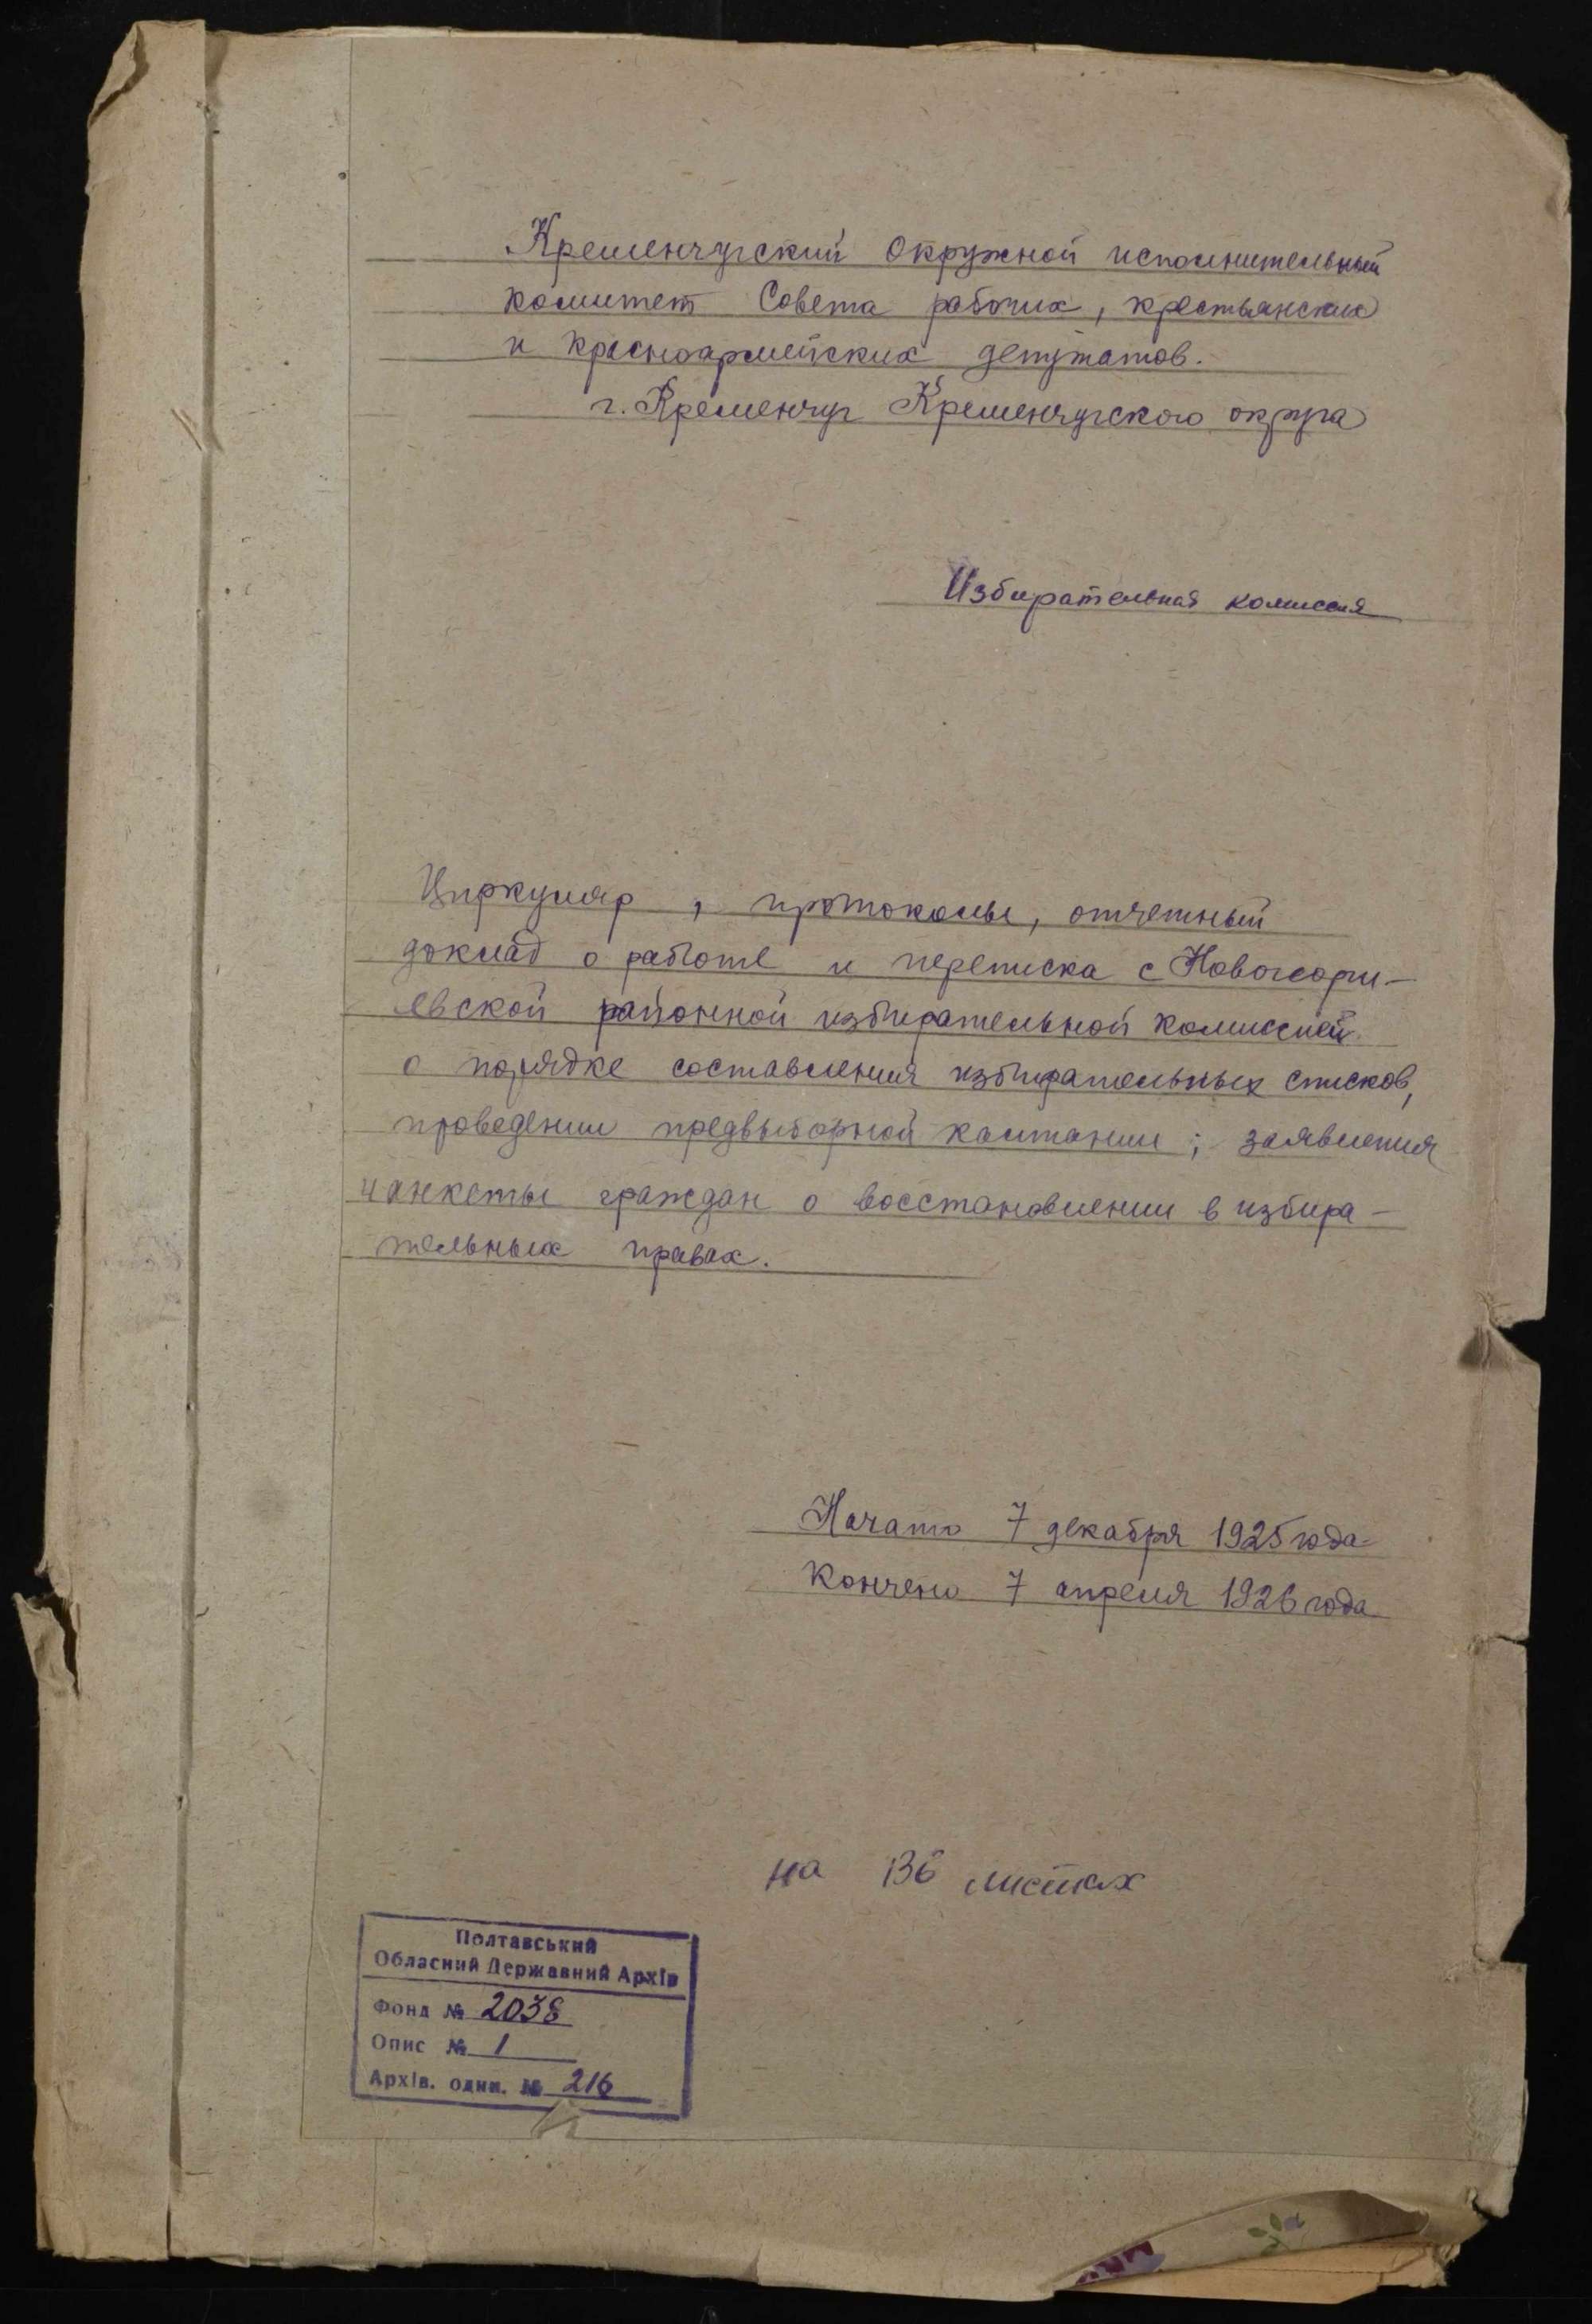 Кременчугский Окружной исполнительный
комитет Совета рабочих, крестьянских
и красноармейских депутатов.
г. Кременчуг Кременчугского округа
Избирательная комиссия
Циркуляр, протоколы, отчетный
доклад о работе и переписка с Новогеорги-
евской районной избирательной комиссией
о порядке составления избирательных списков,
проведении предвыборной кампании; заявления
и анкеты граждан о восстановлении в избира-
тельных правах.
Начато 7 декабря 1925 года
Кончено 7 апреля 1926 года
на 136 листах
Полтавський
Обласний Державний Архів
Фонд № 2038
Опис № 1
Архів. один. № 216